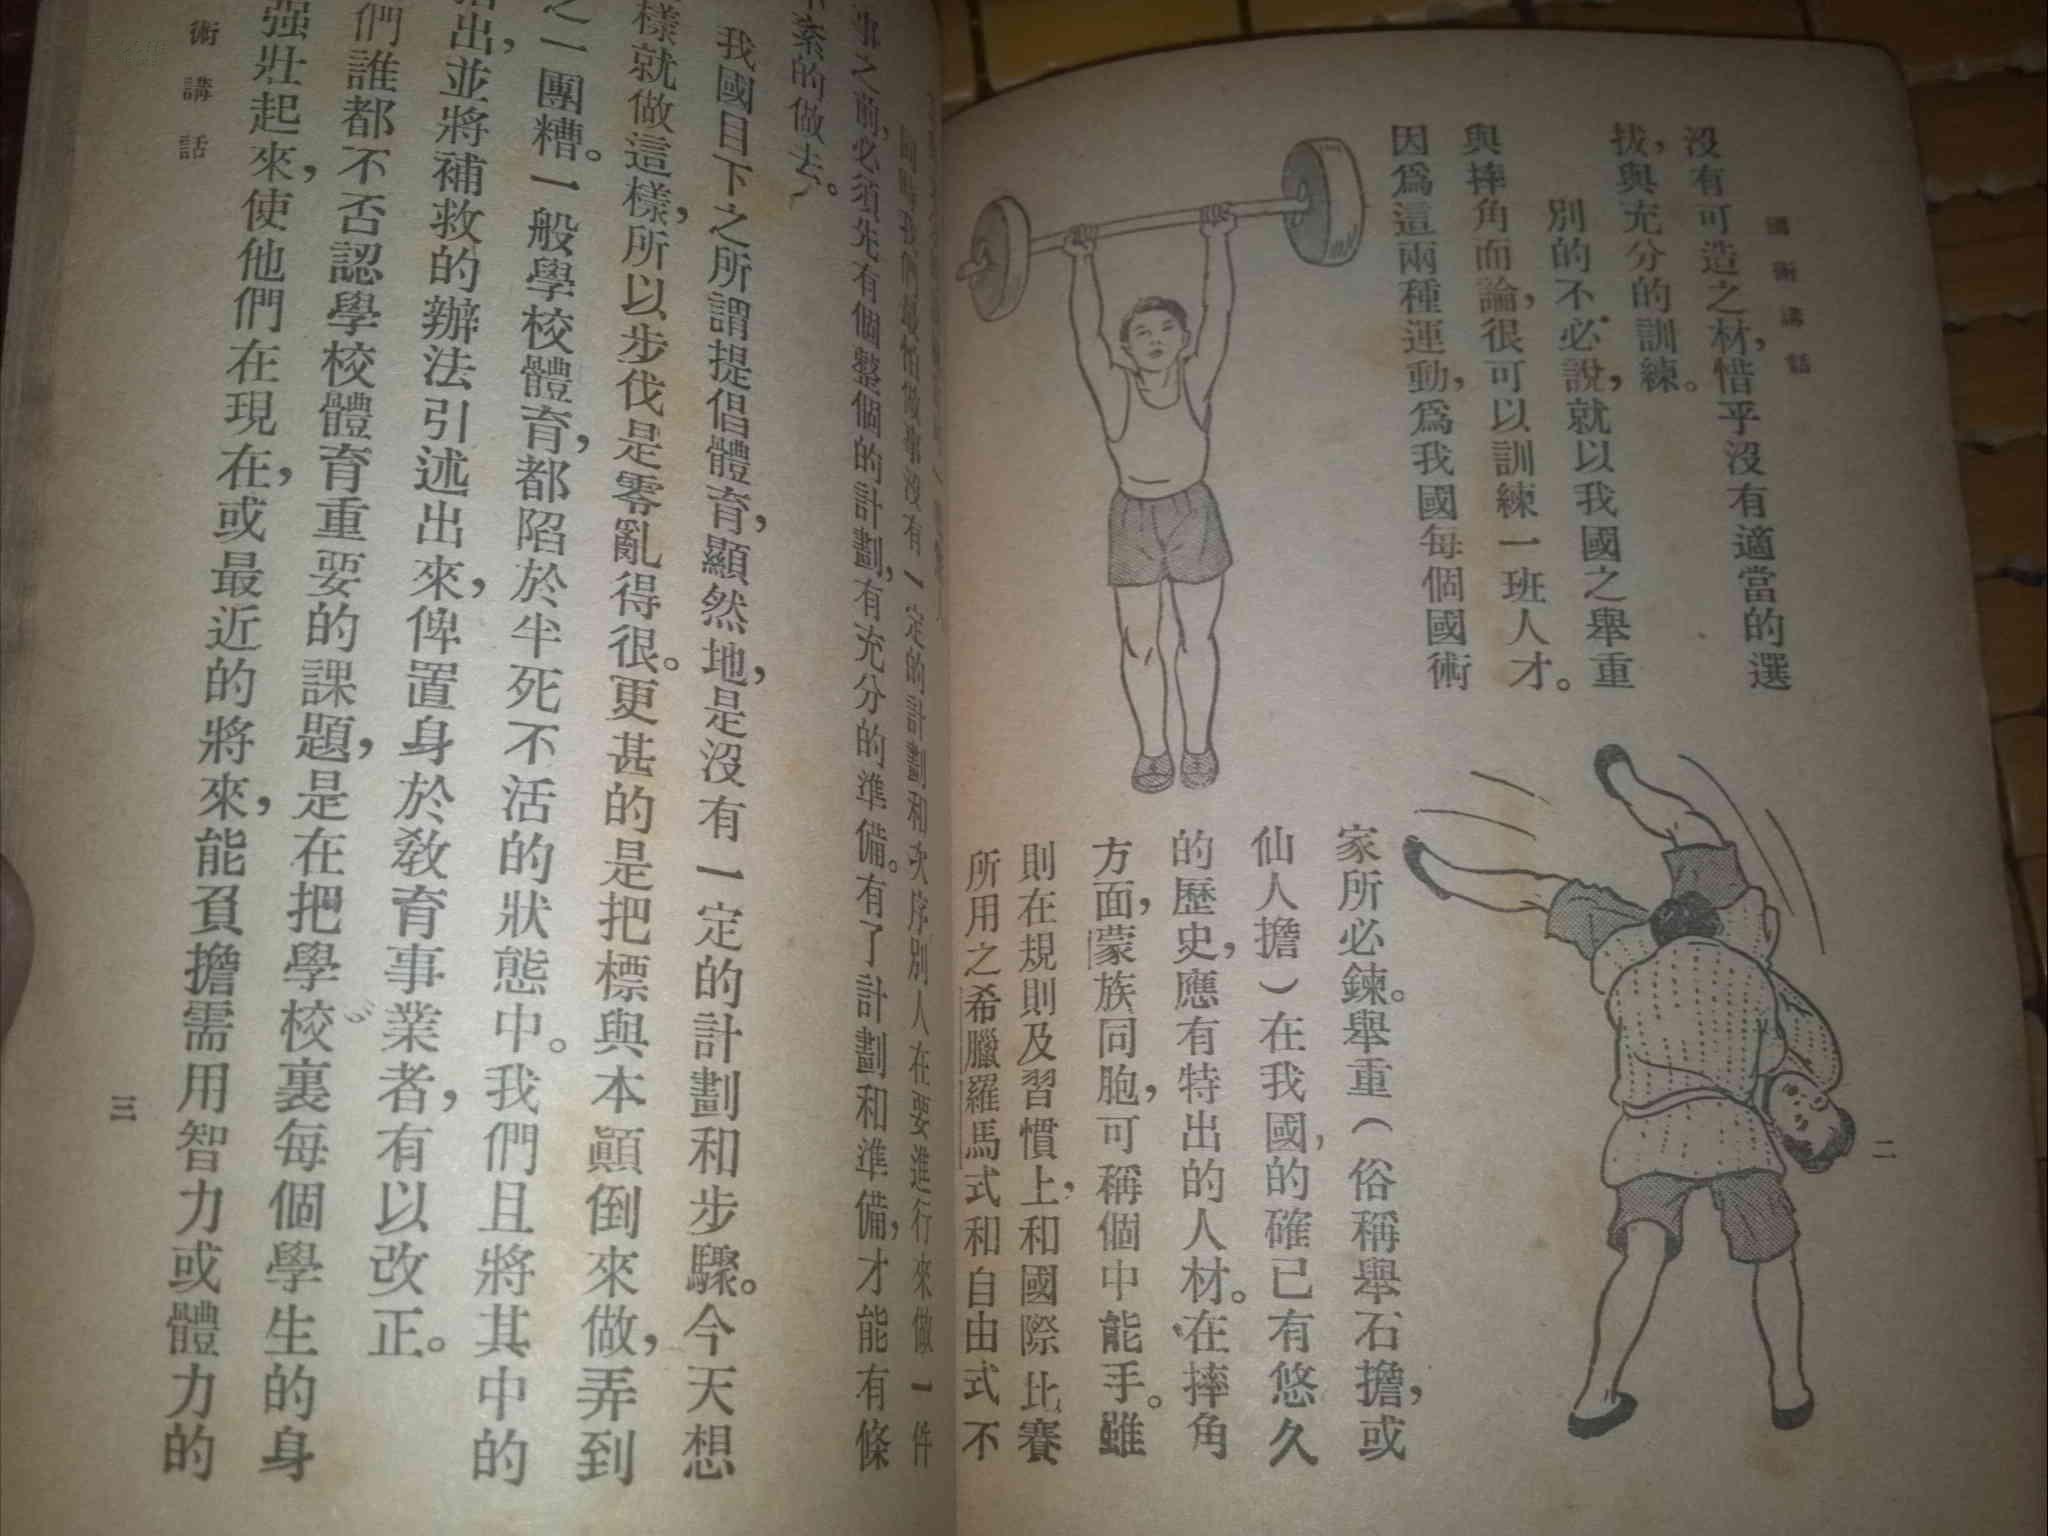 國術講話
二
沒有可造之材，惜乎沒有適當的選
拔，與充分的訓練。
別的不必說，就以我國之舉重
與摔角而論，很可以訓練一班人才。
因爲這兩種運動，爲我國每個國術
家所必鍊。舉重（俗稱舉石擔，或
仙人擔）在我國，的確已有悠久
的歷史，應有特出的人材。在摔角
方面，蒙族同胞，可稱個中能手。雖
則在規則及習慣上，和國際比賽
所用之希臘羅馬式和自由式不
同時我們最怕做事沒有一定的計劃和次序別人在要進行來做一件
事之前，必須先有個整個的計劃，有充分的準備。有了計劃和準備，才能有條
不紊的做去。
我國目下之所謂提倡體育，顯然地，是沒有一定的計劃和步驟。今天想
樣就做這樣，所以步伐是零亂得很。更甚的是把標與本顚倒來做，弄到
之一團糟。一般學校體育，都陷於半死不活的狀態中。我們且將其中的
出，並將補救的辦法引述出來，俾置身於敎育事業者，有以改正。
們誰都不否認學校體育重要的課題，是在把學校裏每個學生的身
强壯起來，使他們在現在，或最近的將來，能負擔需用智力或體力的
術講話
三